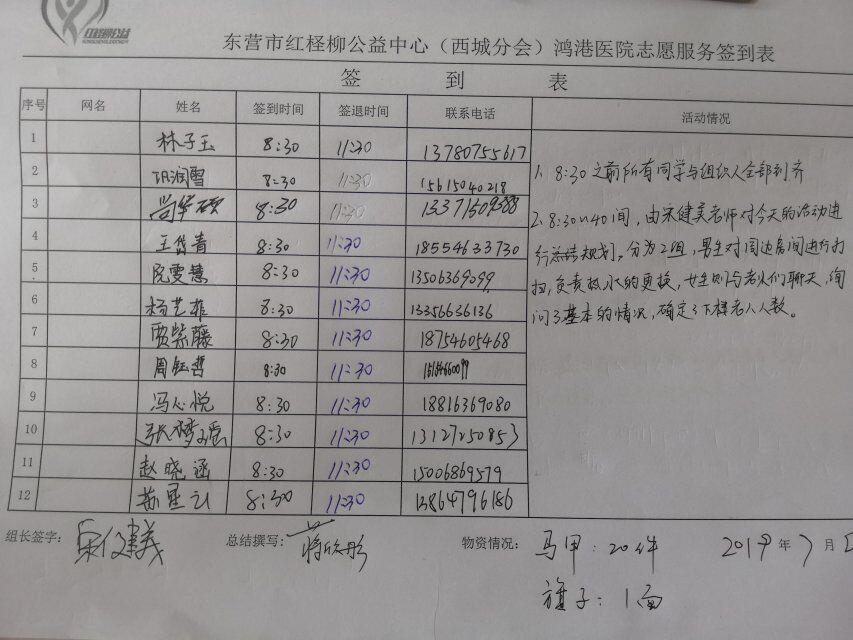 东营市红柽柳公益中心（西城分会）鸿港医院志愿服务签到表
签 到 表
序号 网名 姓名 签到时间 签退时间 联系电话 活动情况
1 林子玉 8:30 11:30 13780755617
2 8:30 11:30 15615040218
3 8:30 11:30 13371509388
4 王岱青 8:30 11:30 18554633730
5 阮雯慧 8:30 11:30 13506369099
6 杨艺雅 8:30 11:30 13356636136
7 贾紫藤 8:30 11:30 18754605468
8 周钰哲 8:30 11:30
9 冯心悦 8:30 11:30 18816369080
10 8:30 11:30 13127250853
11 赵晓涵 8:30 11:30 15006869579
12 8:30 11:30 13864796186
1. 8:30之前所有同学与组织人全部到齐
2. 8:30~40间，由宋健美老师对今天的活动进
行总结规划，分为2组，男生对周边房间进行打
扫，负责放水的更换，女生则与老人们聊天，询
问了基本的情况，确定了下楼老人人数。
组长签字： 总结撰写：蒋欣彤 物资情况：马甲：20件 2019年7月
旗子：1面